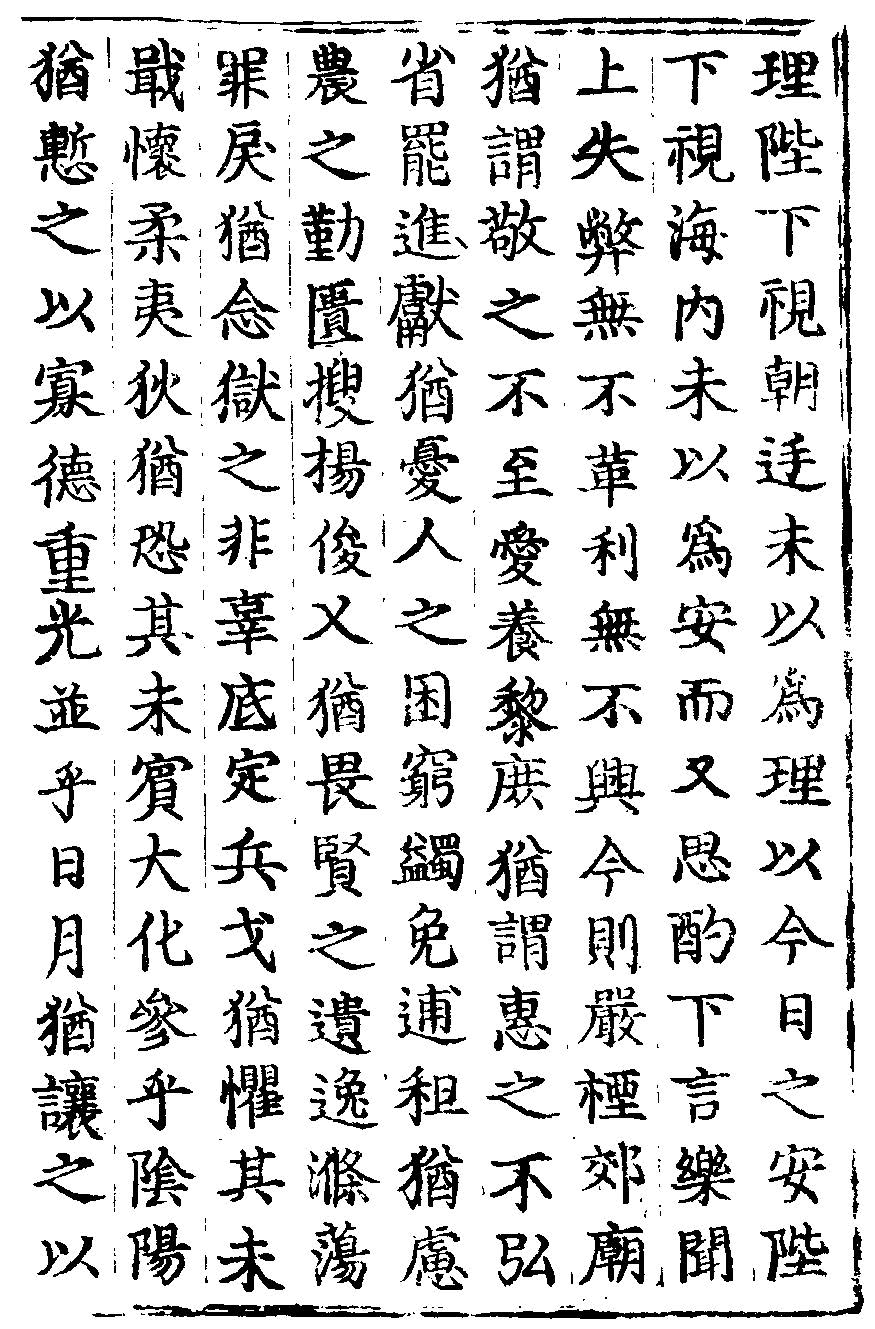 理陛下視朝廷未以爲理以今日之安陛
下視海内未以爲安而又思酌下言樂聞
上失弊無不革利無不興今則嚴禋郊廟
猶謂敬之不至愛養黎庶猶謂惠之不弘
省罷進獻猶憂人之困窮蠲免逋租猶慮
農之勤匱搜揚俊乂猶畏賢之遺逸滌蕩
罪戾猶念獄之非辜底定兵戈猶懼其未
戢懷柔夷狄猶恐其未賓大化參乎陰陽
猶慙之以寡德重光並乎日月猶讓之以